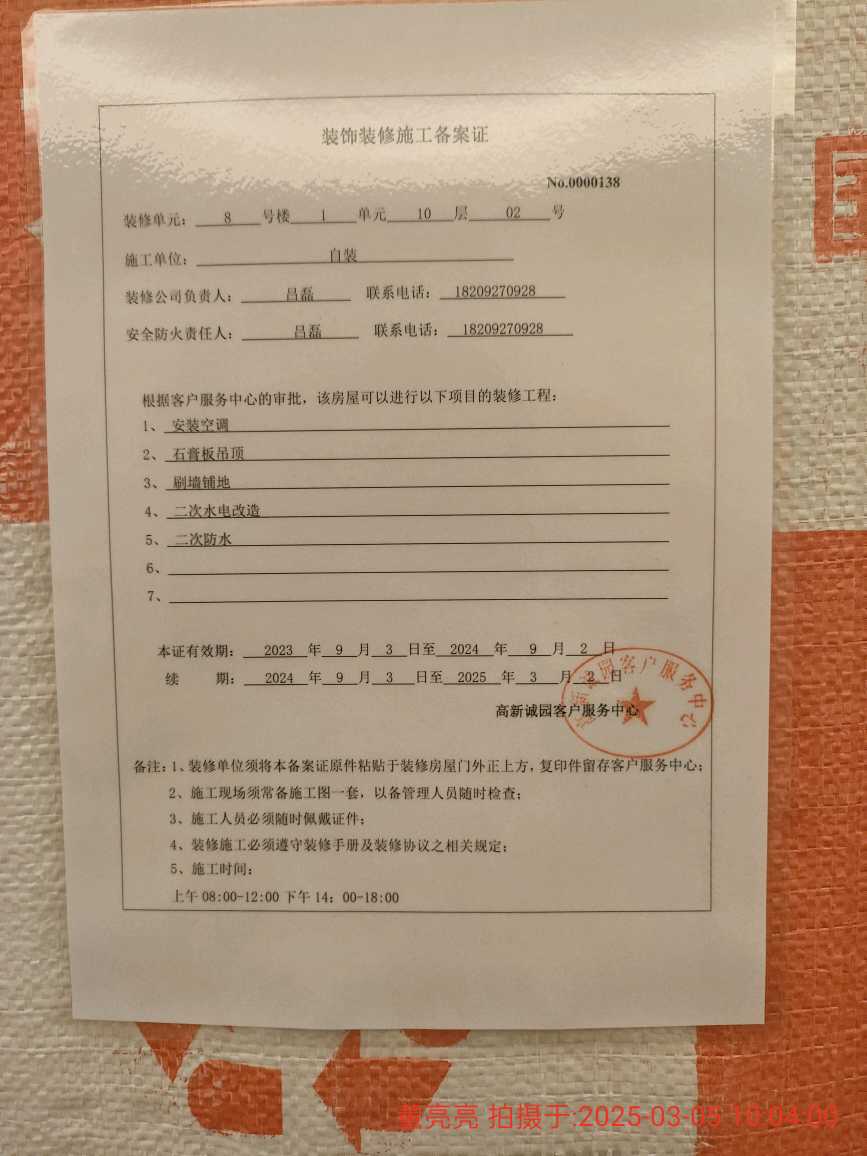 装饰装修施工备案证
No.0000138
装修单元： 8 号楼 1 单元 10 层 02 号
施工单位： 自装
装修公司负责人： 吕磊 联系电话： 18209270928
安全防火责任人： 吕磊 联系电话： 18209270928
根据客户服务中心的审批，该房屋可以进行以下项目的装修工程：
1、 安装空调
2、 石膏板吊顶
3、 刷墙铺地
4、 二次水电改造
5、 二次防水
6、
7、
本证有效期： 2023 年 9 月 3 日至 2024 年 9 月 2 日
续 期： 2024 年 9 月 3 日至 2025 年 3 月 2 日
诚园客户服务中心
高新诚园客户服务中心
备注：1、装修单位须将本备案证原件粘贴于装修房屋门外正上方，复印件留存客户服务中心；
2、施工现场须常备施工图一套，以备管理人员随时检查；
3、施工人员必须随时佩戴证件；
4、装修施工必须遵守装修手册及装修协议之相关规定；
5、施工时间：
上午 08:00-12:00 下午 14：00-18:00
亮亮 拍摄于:2025-03-05 10:04:00